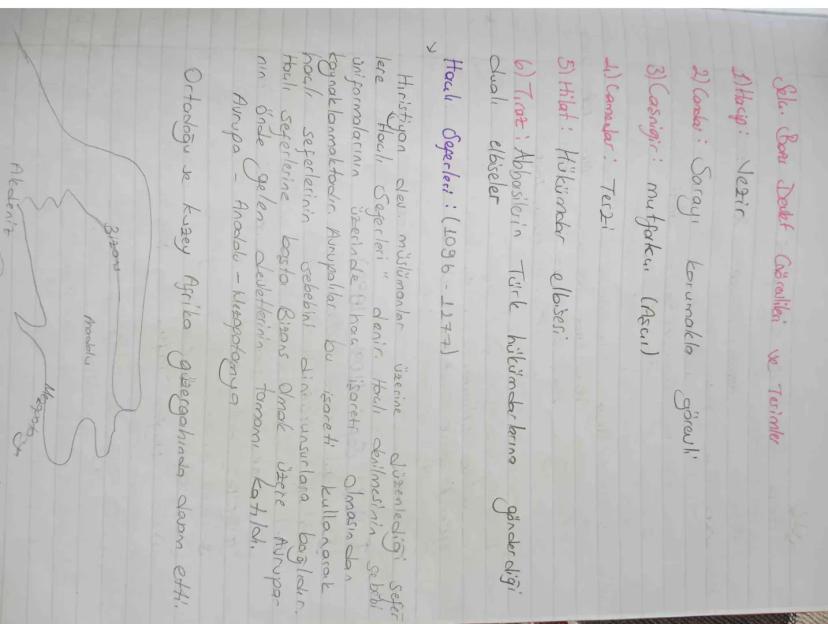 Selç. Bazı Devlet Görevlileri ve Terimler
1) Hacip: Vezir
2) Candar: Sarayı korumakla görevli
3) Casnigir: mutfakçı (Aşçı)
4) Camedar: Terzi
5) Hilat: Hükümdar elbisesi
6) Tıraz: Abbasilerin Türk hükümdarlarına gönderdiği
dualı elbiseler
Haçlı Seferleri: (1096 - 1277)
Hıristiyan dev. müslümanlar üzerine düzenlediği sefer
lere Haçlı Seferleri" denir. Haçlı denilmesinin sebebi
üniformalarının üzerinde haç işareti olmasından
kaynaklanmaktadır. Avrupalılar bu işareti kullanarak
haçlı seferlerinin sebebini dini unsurlara bağladılar.
Haçlı seferlerine başta Bizans olmak üzere Avrupa-
nın önde gelen devletlerinin tamamı katıldı.
Avrupa - Anadolu - Mezopotamya
Ortadoğu ve kuzey Afrika güzergahında devam etti.
Bizans
Anadolu
Akdeniz